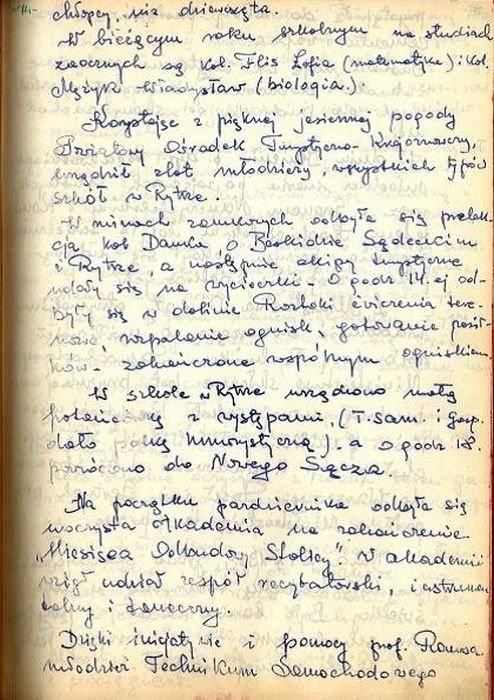 chłopcy, niż dziewczęta.
W bieżącym roku szkolnym na studiach
zaocznych są kol. Flis Zofia (matematyka) i kol.
Mężyk Władysław (biologia.)
Korzystając z pięknej jesiennej pogody
Powiatowy Ośrodek Turystyczno-Krajoznawczy,
urządził zlot młodzieży, wszystkich typów
szkół w Rytrze.
W ruinach zamkowych odbyła się prelek-
cja kol. Danka o Beskidzie Sądeckim
i Rytrze, a następnie ekipy turystyczne
udały się na wycieczki. O godz. 14-ej od-
były się w dolinie Roztoki ćwiczenia tere-
nowe, rozpalanie ognisk, gotowanie posił-
ków - zakończone wspólnym ogniskiem.
W szkole w Rytrze urządzono małą
potańcówkę z występami, (T. Sam. i Gosp.
dało polkę humorystyczną). a o godz 18.
powrócono do Nowego Sącza.
Na początku października odbyła się
uroczysta akademia na zakończenie
"Miesiąca Odbudowy Stolicy". W akademii
wziął udział zespół recytatorski, instrumen
talny i taneczny.
Dzięki inicjatywie i pomocy prof.
młodzież Technikum Samochodowego